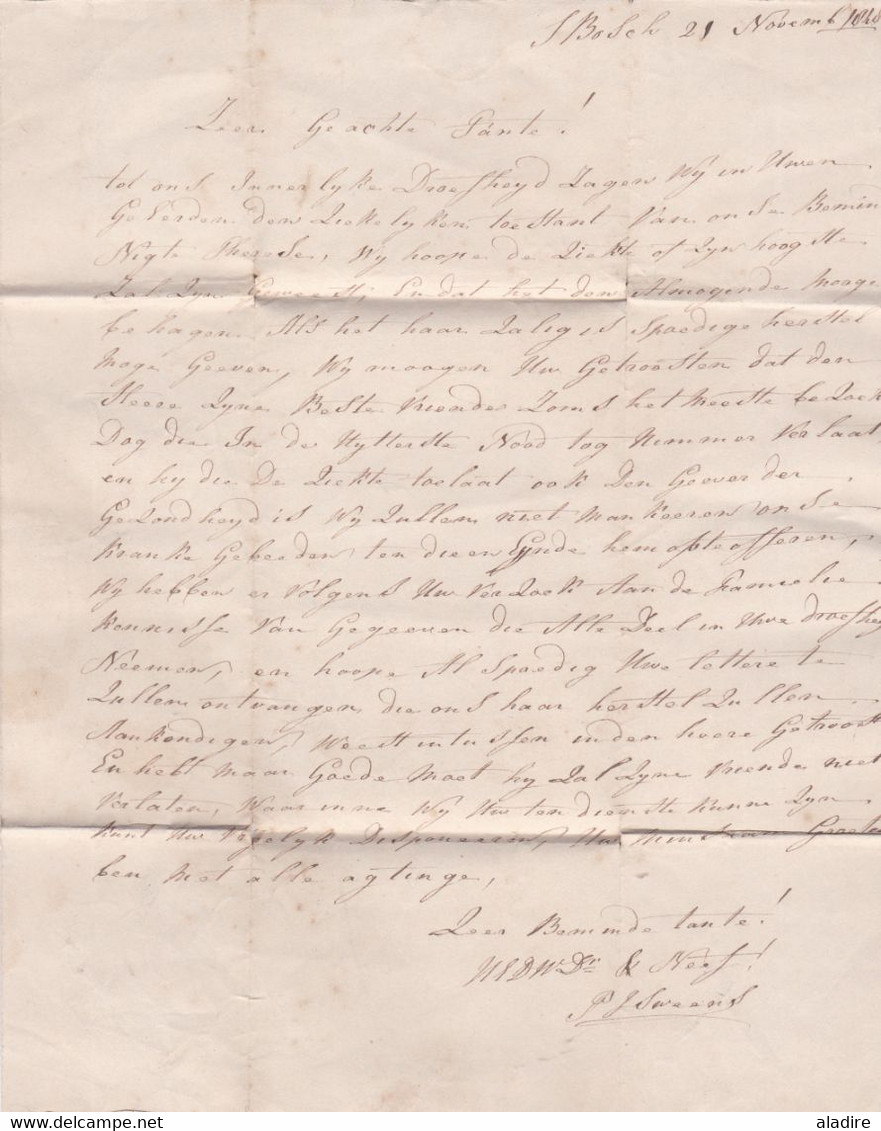 S Bosch 21 Novemb
Zeer Geachte Tante!
tot ons Innerlyke Droefheyd Zagen Wij in Uwen
Geëerden den Ziekelyken toestant Van onse Bemin
Nigte Therese, Wy hoope de Ziekte of Zyn hoogste
Zal Zyn Geweest, En dat het den Almogende Moge
behagen Als het haar Zalig is Spoedige herstel
Moge Geeven, Wy moogen Uw Getroosten dat den
Heere Zyne Beste Vriende Zoms het Meeste bezoek
Dog die In de Uytterste Nood tog Nimmer Verlaat
en hy die De Ziekte toelaat ook Den Geever der
Gezondheyd is Wy Zullen niet Mankeeren onse
Kranke Gebeeden ten dieen Eynde hem opteofferen,
Wy hebben er Volgens Uw Verzoek Aan de Famielie
Kennisse Van Gegeeven die Alle Deel in Uwe droefhey
Neemen, en hoope Al Spoedig Uwe lettere te
Zullen ontvangen die ons haar herstel Zullen
Aankondigen, Weest intussen in den heere Getroost
En hebt maar Goede Moet hy Zal Zyne Vriende niet
Verlaten, Waar inne Wy Uw ten dienste kunne Zyn
kunt Uw Disponeeren,
ben Met alle agtinge,
Zeer Beminde tante!
UEDWDr & Neef!
P J Sweens
aladire